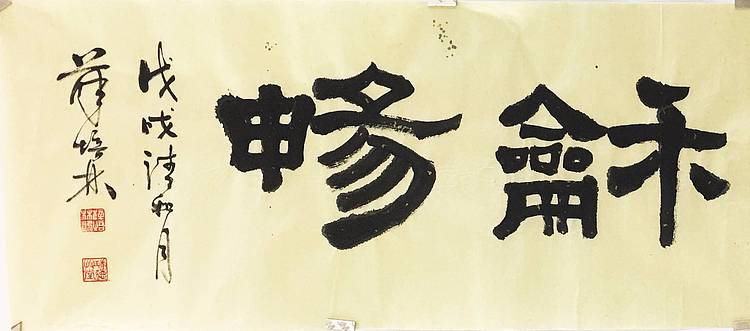 龢暢
戊戌清和月
薛培林